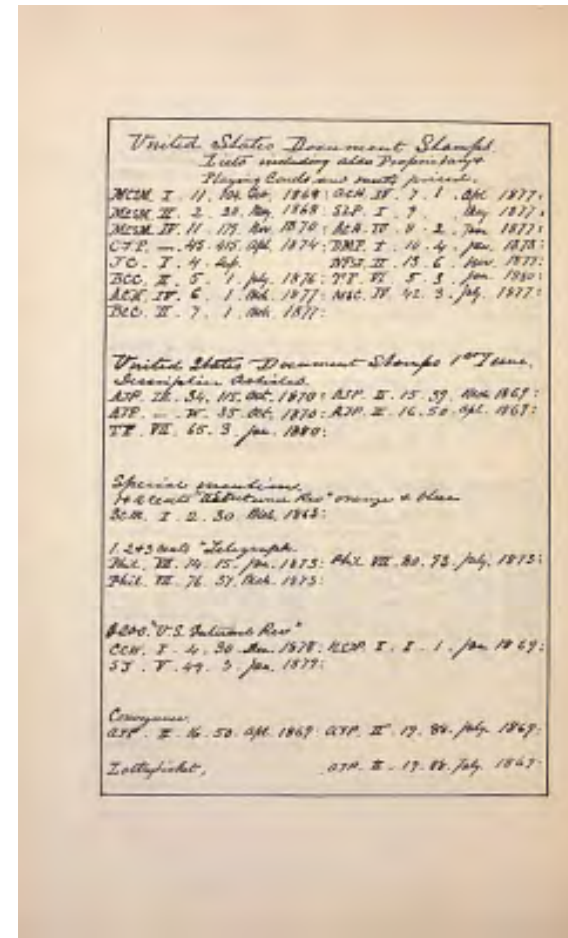 United States Document Stamps.
Lists including also Proprietary &
Playing Cards and mostly priced.
MCSM. I . 11 . 104. Oct. 1868: ACH. IV . 7 . 1 . Apl. 1877:
MCSM. II . 2 . 20. May. 1868: SLP. I . 9 . May 1877:
MCSM. IV . 11 . 175. Nov. 1870: ACH. IV . 8 . 2 . Jun. 1877:
CJP. — . 45. 415. Apl. 1874: I . 10 . 4 . Jan. 1878:
JC. I . 4 . II . 13 . 6 . 1877:
BCC. II . 5 . 1 . July. 1876: TP. VI . 5 . 3 . Jan. 1880:
ACH. IV . 6 . 1 . Mch. 1877: NSC. IV . 42 . 3 . July. 1877:
BCC. II . 7 . 1 . Mch. 1877:
United States Document Stamps 1st Issue.
Descriptive Articles.
AJP. III . 34. 115. Oct. 1870: AJP. II . 15 . 39. Mch. 1869:
AJP. — . IV . 35. Oct. 1870: AJP. II . 16 . 50. Apl. 1869:
TP. VII . 65. 3. Jan. 1880:
Special mention.
cents Rev" orange & blue
BCM. I . 2 . 30. Mch. 1863:
1. 2 & 3 cents "Telegraph.
Phil. VII . 74. 15. Jan. 1873: Phil. VII . 80. 73. July. 1873:
Phil. VII . 76. 37. Mch. 1873:
$200. "U.S. Internal Rev"
CCH. I . 4 . 30. 1870: I . I . 1 . Jan. 1869:
SJ . V . 49 . 3 . Jan. 1879:
Conveyance.
AJP. II . 16 . 50. Apl. 1869: AJP. II . 19 . 88. July. 1869:
Lottery ticket, AJP. II . 19 . 88. July. 1869: